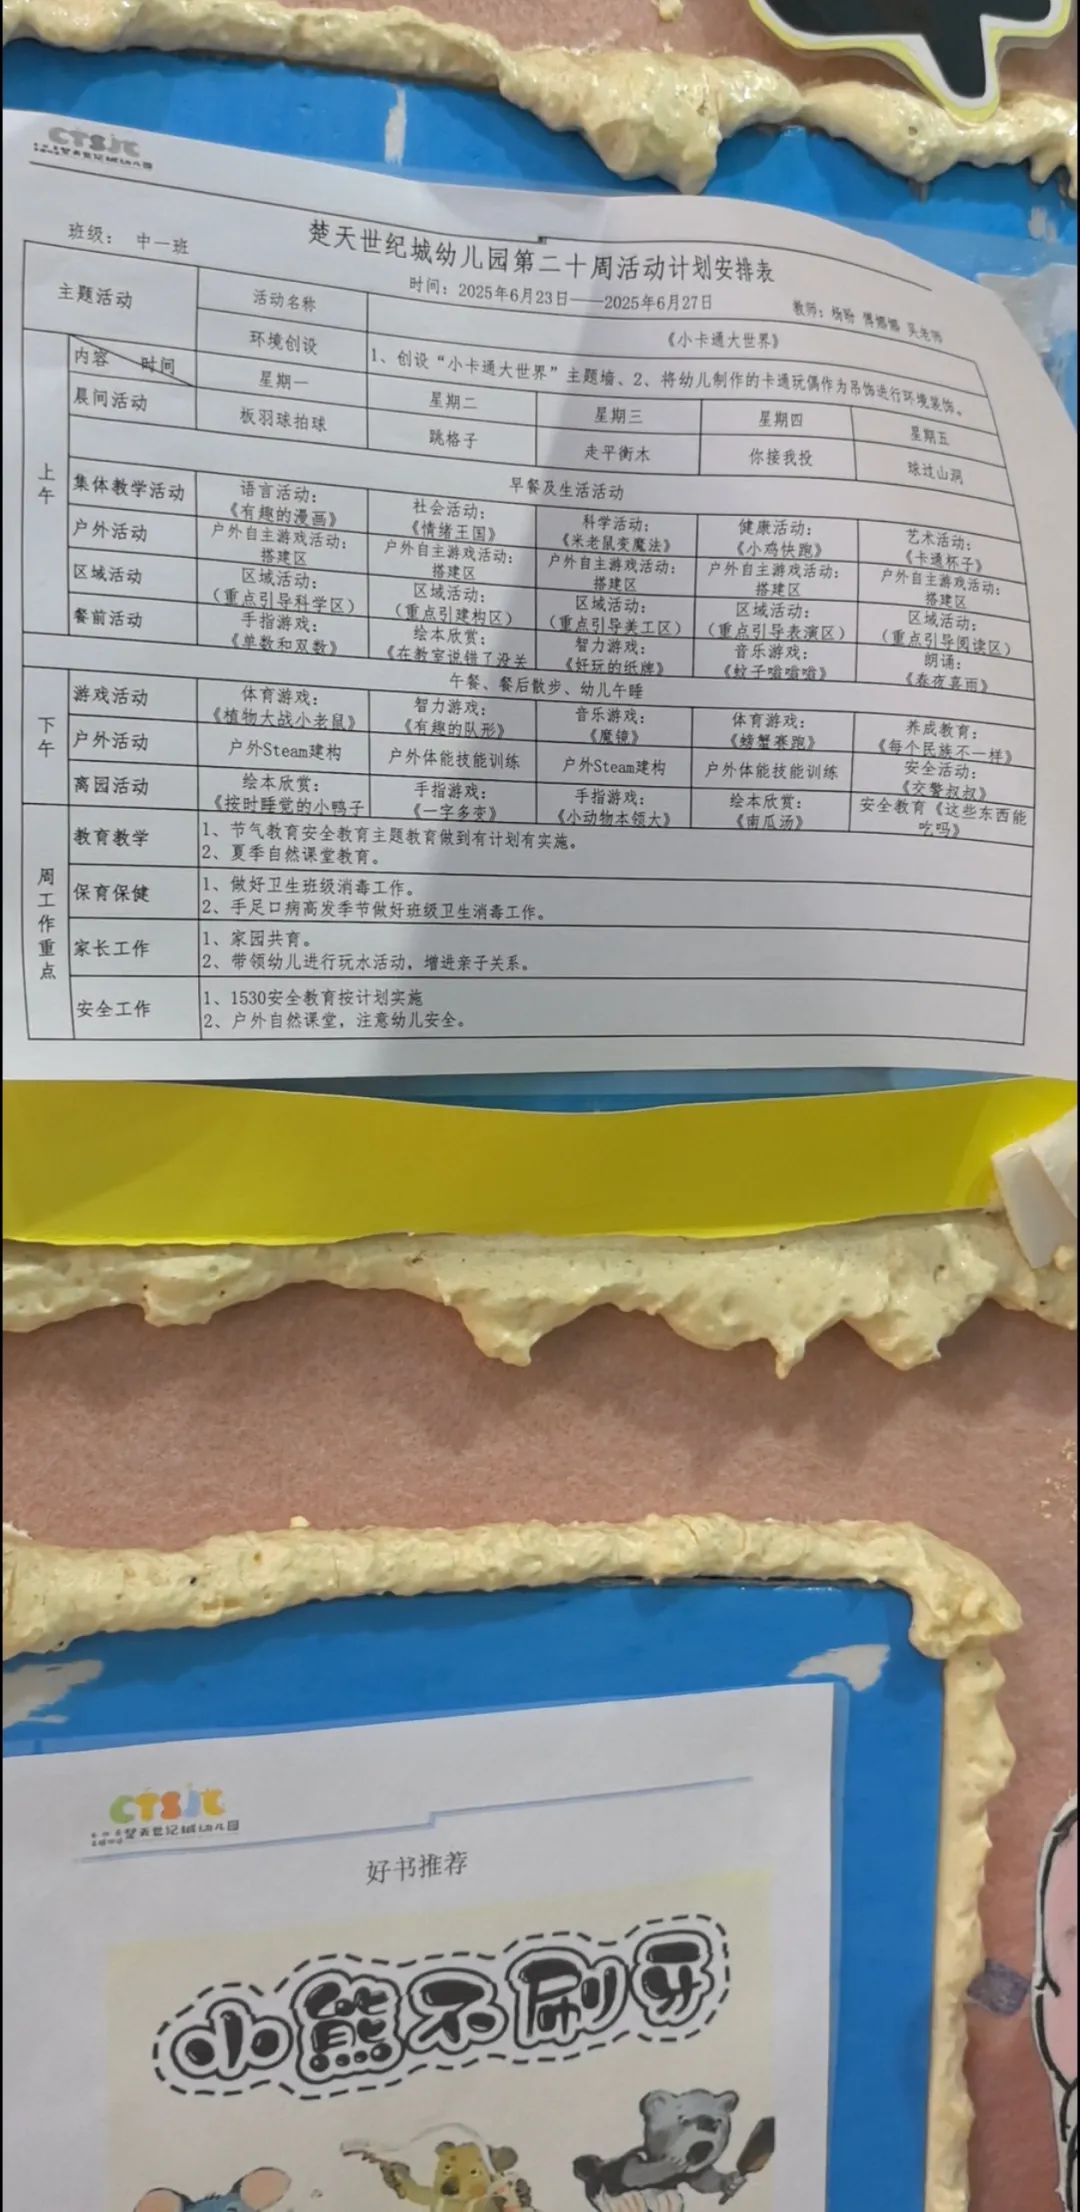 CTSJC
楚天世纪城幼儿园
楚天世纪城幼儿园第二十周活动计划安排表
班级： 中一班
时间：2025年6月23日——2025年6月27日
教师：杨盼 傅娜娜 吴老师
主题活动 活动名称 《小卡通大世界》
环境创设 1、创设“小卡通大世界”主题墙、2、将幼儿制作的卡通玩偶作为吊饰进行环境装饰。
内容 时间 星期一 星期二 星期三 星期四 星期五
上午
晨间活动 板羽球拍球 跳格子 走平衡木 你接我投 球过山洞
早餐及生活活动
集体教学活动 语言活动： 社会活动： 科学活动： 健康活动： 艺术活动：
《有趣的漫画》 《情绪王国》 《米老鼠变魔法》 《小鸡快跑》 《卡通杯子》
户外活动 户外自主游戏活动： 户外自主游戏活动： 户外自主游戏活动： 户外自主游戏活动： 户外自主游戏活动：
搭建区 搭建区 搭建区 搭建区 搭建区
区域活动 区域活动： 区域活动： 区域活动： 区域活动： 区域活动：
（重点引导科学区） （重点引建构区） （重点引导美工区） （重点引导表演区） （重点引导阅读区）
餐前活动 手指游戏： 绘本欣赏： 智力游戏： 音乐游戏： 朗诵：
《单数和双数》 《在教室说错了没关 《好玩的纸牌》 《蚊子嗡嗡嗡》 《春夜喜雨》
午餐、餐后散步、幼儿午睡
下午
游戏活动 体育游戏： 智力游戏： 音乐游戏： 体育游戏： 养成教育：
《植物大战小老鼠》 《有趣的队形》 《魔镜》 《螃蟹赛跑》 《每个民族不一样》
户外活动 户外Steam建构 户外体能技能训练 户外Steam建构 户外体能技能训练 安全活动：
《交警叔叔》
离园活动 绘本欣赏： 手指游戏： 手指游戏： 绘本欣赏： 安全教育《这些东西能
《按时睡觉的小鸭子 《一字多变》 《小动物本领大》 《南瓜汤》 吃吗》
周工作重点
教育教学 1、节气教育安全教育主题教育做到有计划有实施。
2、夏季自然课堂教育。
保育保健 1、做好卫生班级消毒工作。
2、手足口病高发季节做好班级卫生消毒工作。
家长工作 1、家园共育。
2、带领幼儿进行玩水活动，增进亲子关系。
安全工作 1、1530安全教育按计划实施
2、户外自然课堂，注意幼儿安全。
CTSJC
楚天世纪城幼儿园
好书推荐
小熊不刷牙